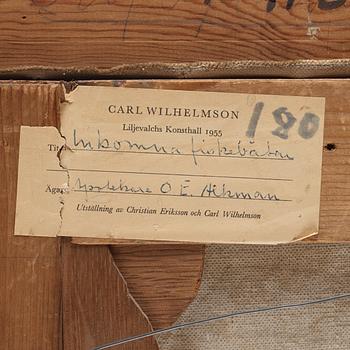 CARL WILHELMSON
Liljevalchs Konsthall 1955
180
Tit Inkomna fiskebåtar
Äga Apotekare O E. Hikman
Utställning av Christian Eriksson och Carl Wilhelmson